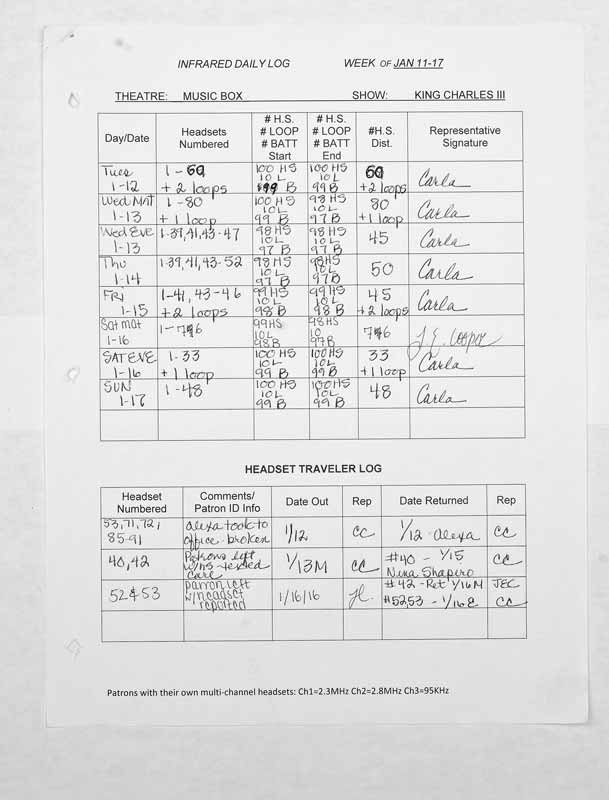 INFRARED DAILY LOG WEEK OF JAN 11-17
THEATRE: MUSIC BOX SHOW: KING CHARLES III
Day/Date
Headsets Numbered
# H.S. # LOOP # BATT Start
# H.S. # LOOP # BATT End
#H.S. Dist.
Representative Signature
Tues 1-12
1-60 +2 loops
100 HS 10 L 99 B
100 HS 10 L 99 B
60 +2 loops
Carla
Wed Mat 1-13
1-80 +1 loop
100 HS 10L 99 B
98 HS 10L 97 B
80 +1 loop
Carla
Wed Eve 1-13
1-39,41,43-47
98 HS 10L 97 B
98 HS 10L 97 B
45
Carla
Thu 1-14
1-39,41,43-52
98 HS 10L 97B
98HS 10L 97B
50
Carla
FRI 1-15
1-41, 43-46 +2 loops
99 HS 10L 98 B
99 HS 10L 98 B
45 +2 loops
Carla
Sat mat 1-16
1-76
99HS 10L 98B
98HS 10 97B
76
J E Cooper
SAT EVE 1-16
1-33 +1 loop
100 HS 10 L 99 B
100HS 10L 99 B
33 +1 loop
Carla
SUN 1-17
1-48
100 HS 10L 99 B
100HS 10L 99 B
48
Carla
HEADSET TRAVELER LOG
Headset Numbered
Comments/ Patron ID Info
Date Out
Rep
Date Returned
Rep
53,71,72, 85-91
alexa took to office broken
1/12
CC
1/12 - Alexa
CC
40,42
Patrons left w/HS - texted Carl
1/13M
CC
#40 - 1/15 Nina Shapiro
CC
52&53
patron left w/headset reported
1/16/16
#42 - Ret 1/16M
JEC
#52,53 - 1/16E
CC
Patrons with their own multi-channel headsets: Ch1=2.3MHz Ch2=2.8MHz Ch3=95KHz